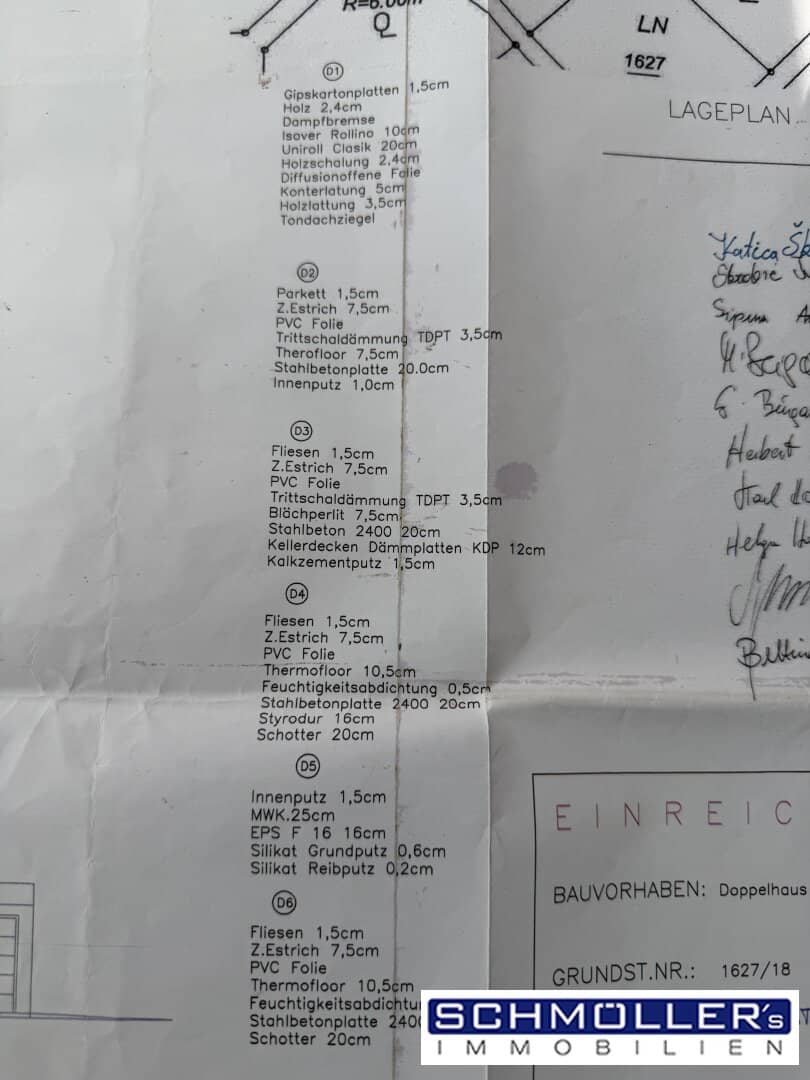 R=6.00m
Q
LN
1627
LAGEPLAN
D1
Gipskartonplatten 1,5cm
Holz 2,4cm
Dampfbremse
Isover Rollino 10cm
Uniroll Clasik 20cm
Holzschalung 2,4cm
Diffusionoffene Folie
Konterlatung 5cm
Holzlattung 3,5cm
Tondachziegel
D2
Parkett 1,5cm
Z.Estrich 7,5cm
PVC Folie
Trittschaldämmung TDPT 3,5cm
Therofloor 7,5cm
Stahlbetonplatte 20.0cm
Innenputz 1,0cm
D3
Fliesen 1,5cm
Z.Estrich 7,5cm
PVC Folie
Trittschaldämmung TDPT 3,5cm
Blächperlit 7,5cm
Stahlbeton 2400 20cm
Kellerdecken Dämmplatten KDP 12cm
Kalkzementputz 1,5cm
D4
Fliesen 1,5cm
Z.Estrich 7,5cm
PVC Folie
Thermofloor 10,5cm
Feuchtigkeitsabdichtung 0,5cm
Stahlbetonplatte 2400 20cm
Styrodur 16cm
Schotter 20cm
D5
Innenputz 1,5cm
MWK.25cm
EPS F 16 16cm
Silikat Grundputz 0,6cm
Silikat Reibputz 0,2cm
D6
Fliesen 1,5cm
Z.Estrich 7,5cm
PVC Folie
Thermofloor 10,5cm
Feuchtigkeitsabdichtu
Stahlbetonplatte 240
Schotter 20cm
Katica
Herbert
Helga
EINREIC
BAUVORHABEN: Doppelhaus
GRUNDST.NR.: 1627/18
SCHMÖLLER's
IMMOBILIEN